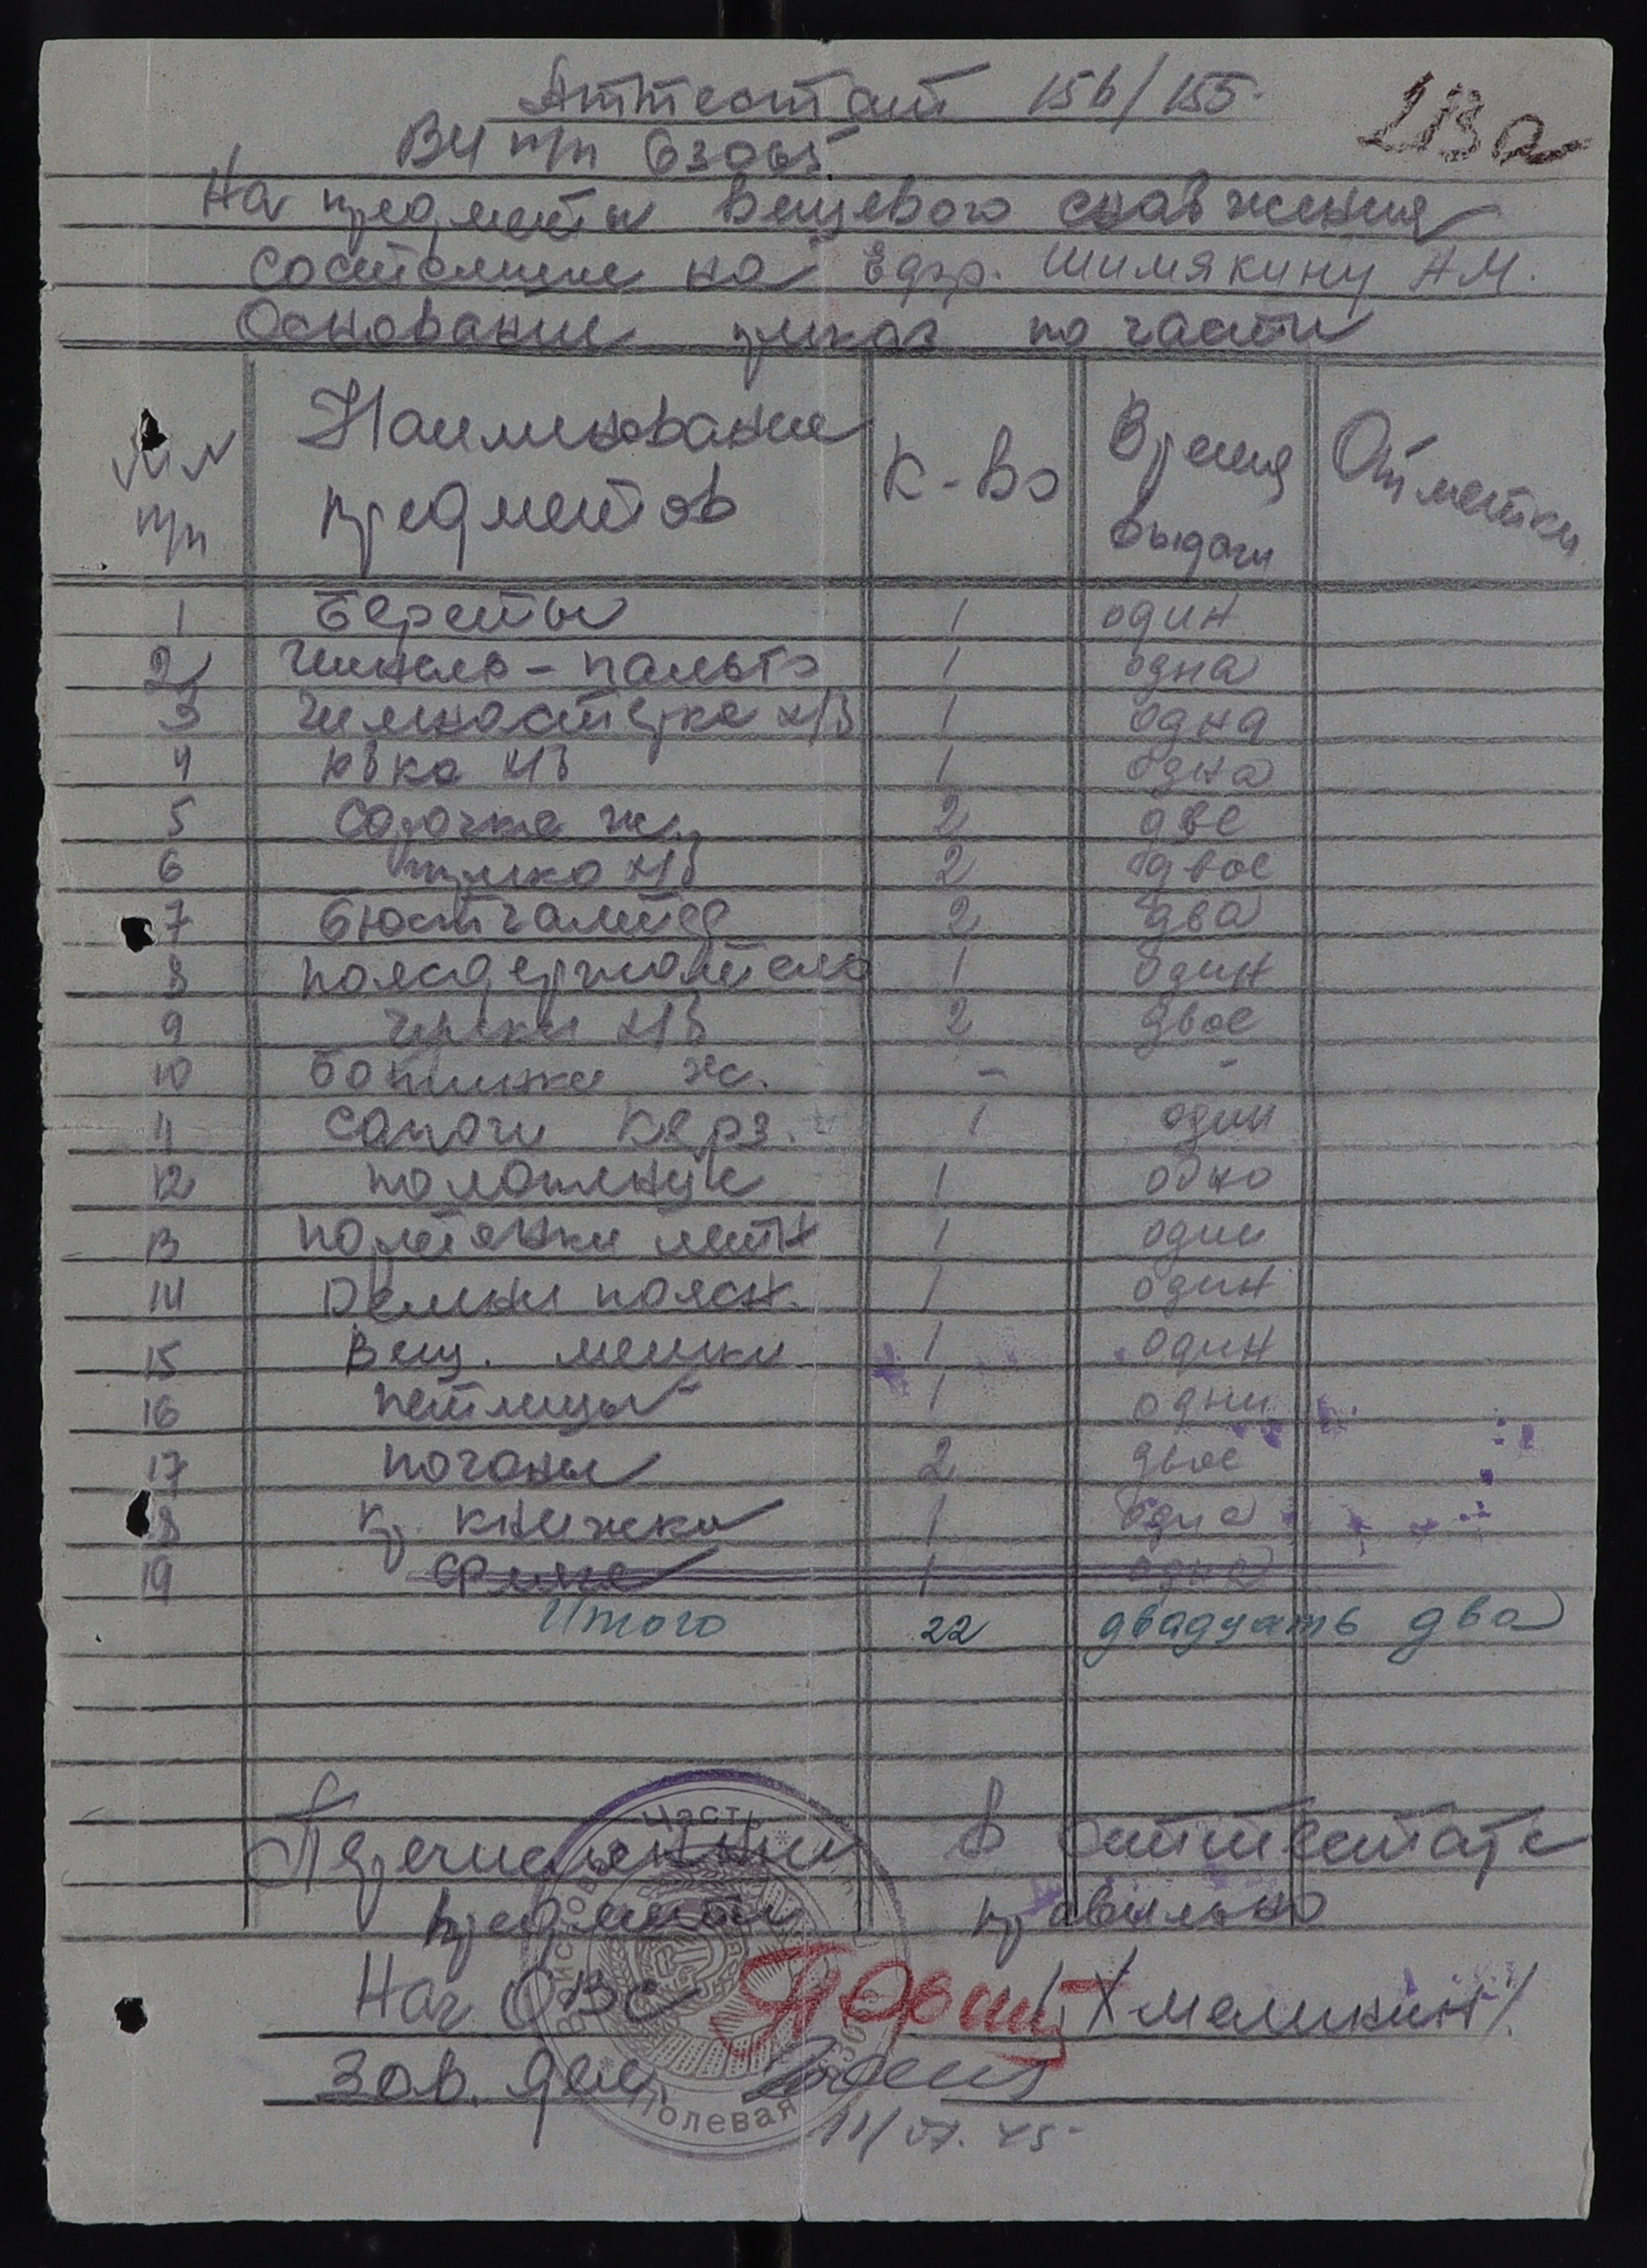 Аттестат 156/155
213а
ВЧ п/п 63065
На предметы вещевого снабжения
состоящие на Ефр. Шимякину А.М.
Основание приказ по части
№ №
п/п
Наименование
предметов
К-во
Время
выдачи
Отметки
1 Береты 1 один
2 Шинель-пальто 1 одна
3 Гимнастерка х/б 1 одна
4 Юбка х/б 1 одна
5 Сорочка ж. 2 две
6 х/б 2 двое
7 Бюстгалтер 2 два
8 Поясодержатель 1 один
9 Чулки х/б 2 двое
10 Ботинки ж. - -
11 Сапоги керз. 1 один
12 1 одно
13 Портянки летн 1 один
14 Ремни поясн. 1 один
15 Вещ. мешки 1 один
16 Петлицы 1 одни
17 Погоны 2 двое
18 Кр. книжка 1 одна
19 1 одна
Итого 22 двадцать два
Перечисленные в аттестате
предметы правильно
Нач ОВС /Хмелинин/
Зав. дел.
Войсковая Часть
Полевая
11/VII.45